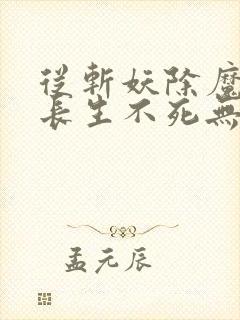 從斬妖除魔
長生不死無
孟元辰